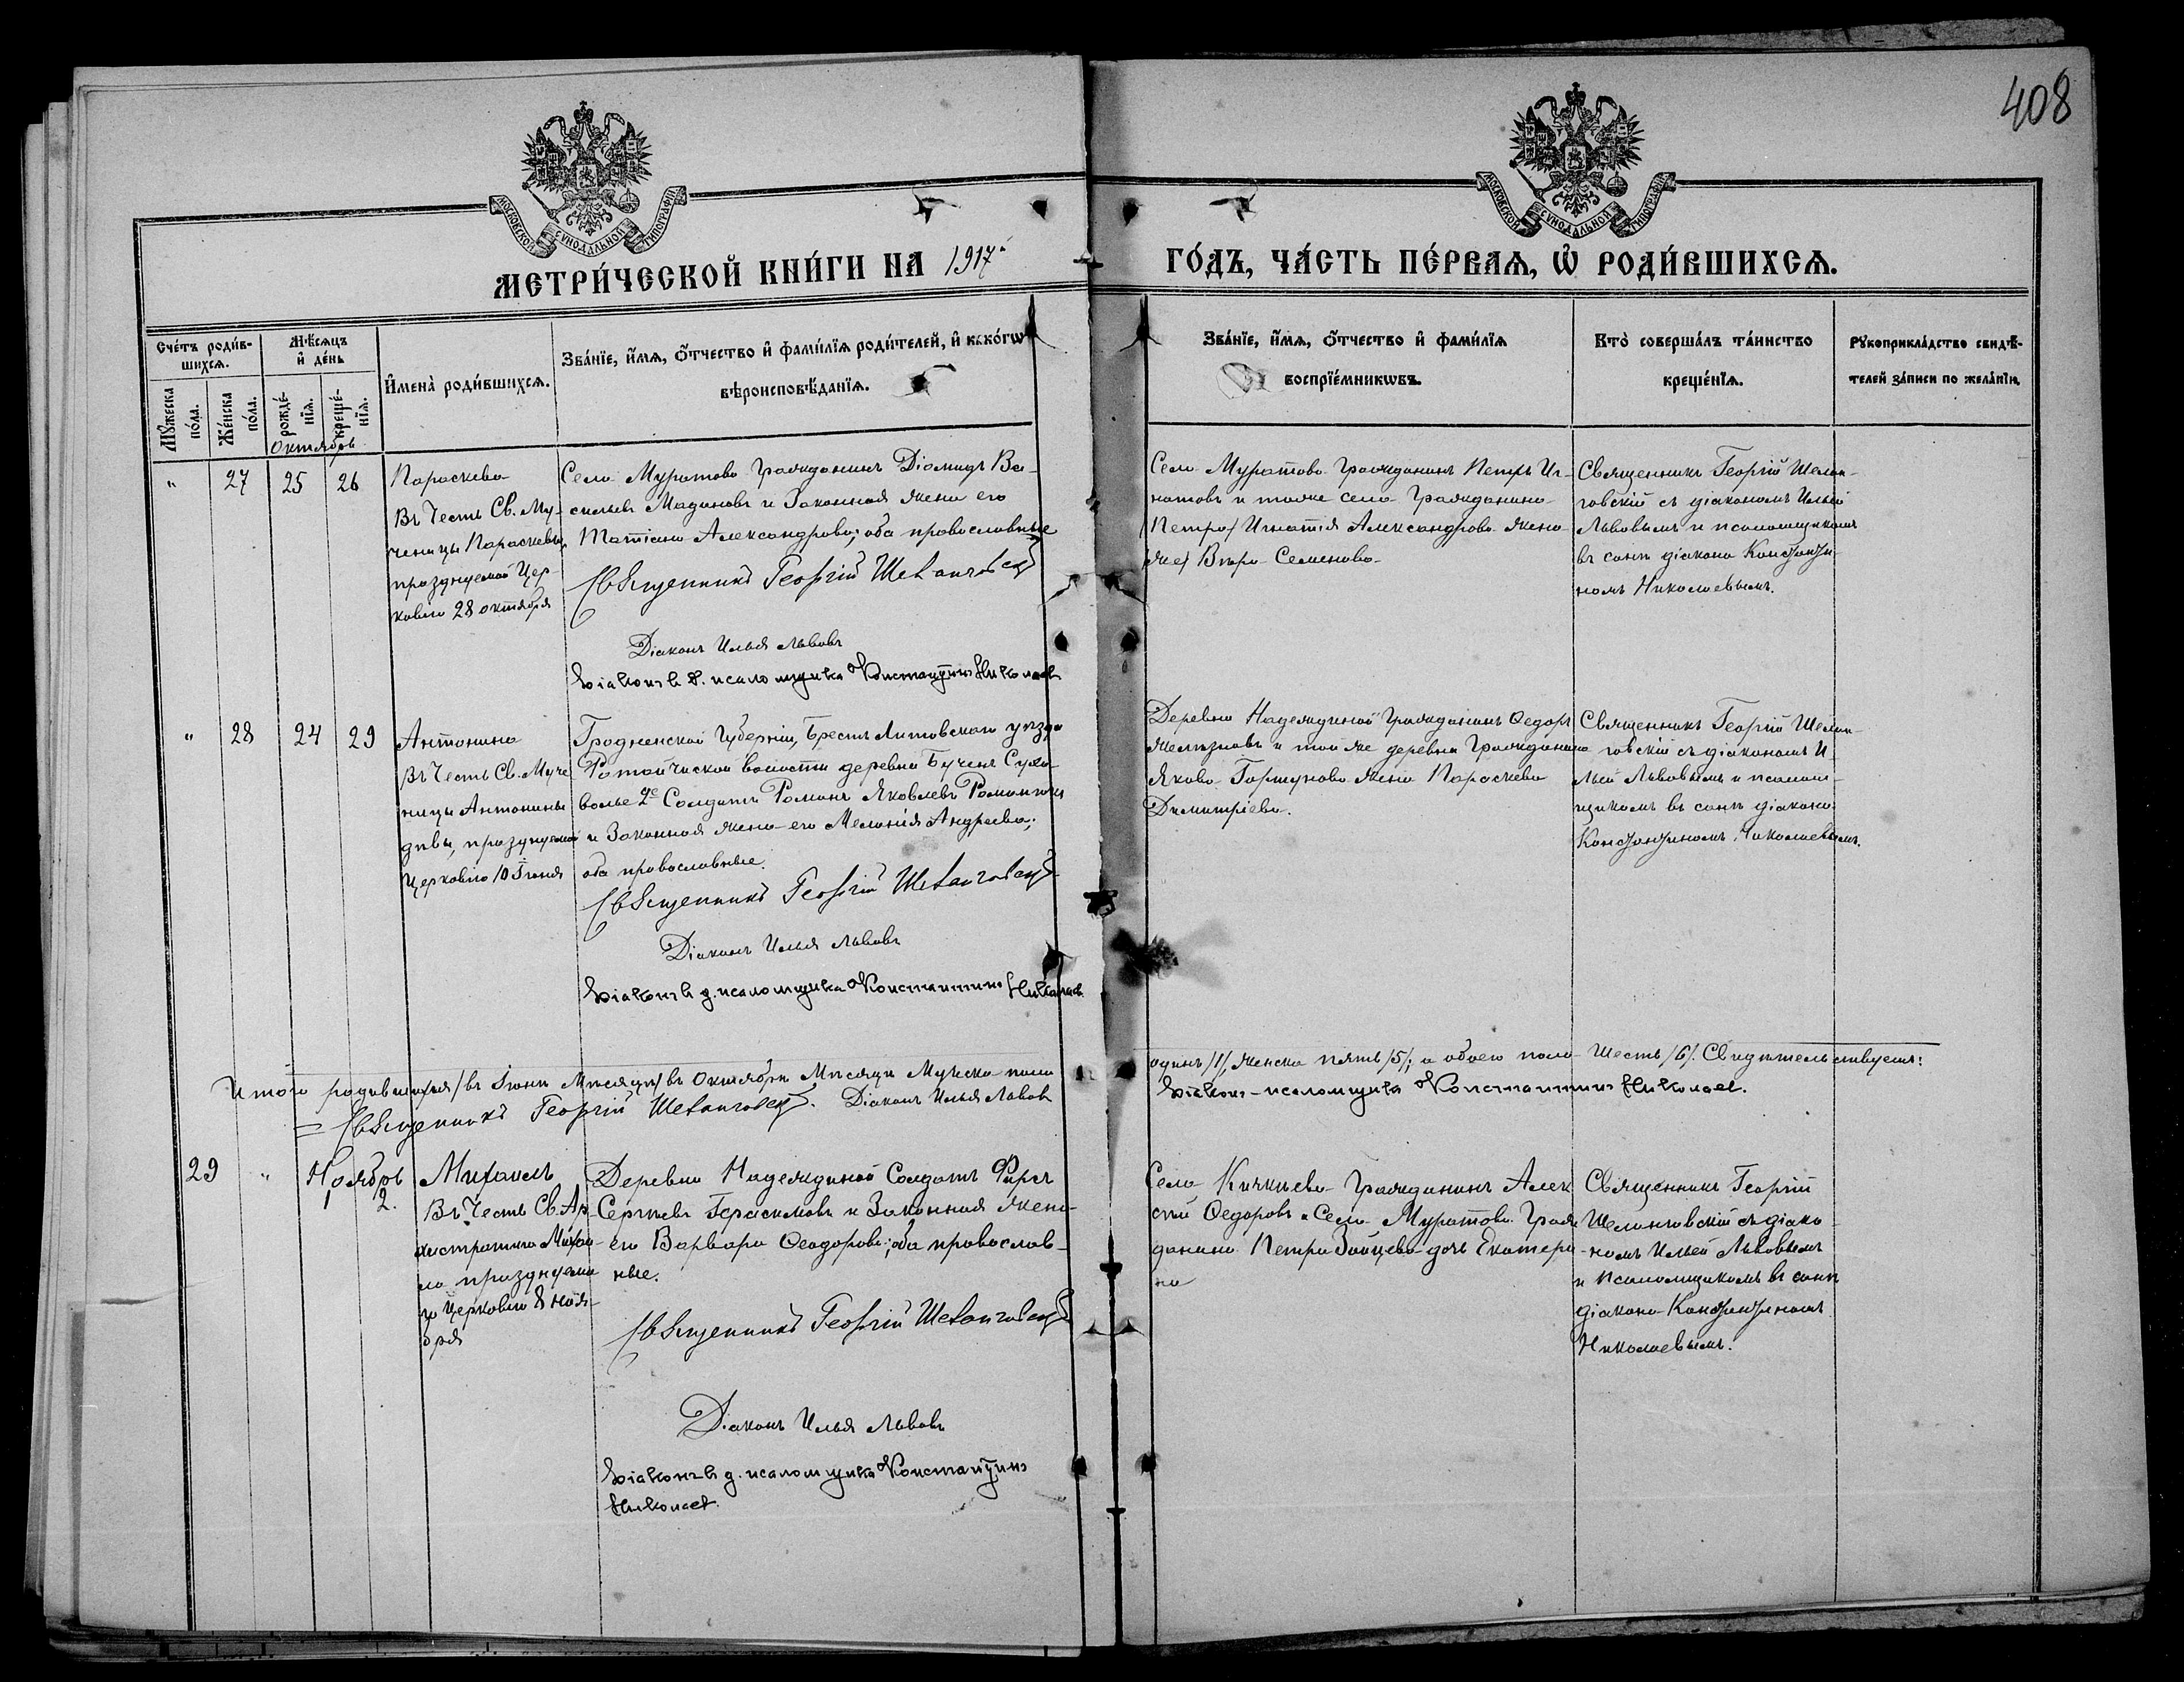 408
МОСКОВСКОЙ СѴНОДАЛЬНОЙ ТИПОГРАФІИ
МОСКОВСКОЙ СѴНОДАЛЬНОЙ ТИПОГРАФІИ
МЕТРИ́ЧЕСКОЙ КНИ́ГИ НА 1917
ГО́ДЪ, ЧА́СТЬ ПЕ́РВАѦ, Ѡ҆ РОДИ́ВШИХСѦ.
Сче́тъ роди́в-
шихсѧ.
Мꙋ́жеска по́ла.
Же́нска по́ла.
Мѣ́сѧцъ
и҆ де́нь
рожде́-
нїѧ.
креще́-
нїѧ.
И҆мена̀ роди́вшихсѧ.
Зва́нїе, и҆́мѧ, ѻ҆́тчество и҆ фами́лїѧ роди́телей, и҆ како́гѡ
вѣроисповѣ́данїѧ.
Зва́нїе, и҆́мѧ, ѻ҆́тчество и҆ фами́лїѧ
воспрїе́мникѡвъ.
Кто̀ соверша́лъ та́инство
креще́нїѧ.
Рꙋкоприкла́дство свидѣ́-
телей за́писи по жела́нїю.
Октябрь
" 27 25 26
Параскева
Въ Честь Св. Му-
ченицы Параскевы,
празднуемой Цер-
ковію 28 октября
Села Муратова Гражданинъ Діомидъ Ва-
сильевъ Мадиновъ и Законная жена его
Татіана Александрова; оба православные
Священникъ Георгій Шелантовскій
Діаконъ Илья Львовъ
Діаконъ в д. псаломщика Константинъ Николаев
Села Муратова Гражданинъ Петръ Иг-
натовъ и тоже села Гражданина
/Петра/ Игнатія Александрова жена
же/ Вѣра Семенова
Священникъ Георгій Шелан-
товскій съ діакономъ Ильей
Львовымъ и псаломщикомъ
въ санѣ діакона Константи-
номъ Николаевымъ.
" 28 24 29
Антонина
Въ Честь Св. Муче
ницы Антонины
дѣвы, празднуемой
Церковію 10 Іюня
Гродненской Губерніи, Брестъ Литовскаго уѣзда
Ратайчиской волости деревни Бучень Сухо-
волье 2е Солдатъ Романъ Яковлевъ Романюкъ
и Законная жена его Меланія Андреева;
оба православные.
Священникъ Георгій Шелантовскій
Діаконъ Илья Львовъ
Діаконъ в д. псаломщика Константинъ Николаев
Деревни Надеждиной Гражданинъ Ѳедоръ
Желѣзновъ и той же деревни Гражданина
Якова Горшунова жена Параскева
Димитріева.
Священникъ Георгій Шелан-
товскій съ діакономъ И-
льей Львовымъ и псалом-
щикомъ въ санѣ діакона
Константиномъ Николаевымъ.
Итого родившихся /въ Іюнѣ Мѣсяцѣ/ въ Октябрѣ Мѣсяцѣ Мужска пола
одинъ /1/, женска пять /5/; а обоего пола Шесть /6/. Свидѣтельствуемъ:
= Священникъ Георгій Шелантовскій. Діаконъ Илья Львовъ
Діаконъ-псаломщикъ Константинъ Николаев.
29 " Ноябрь
1 2.
Михаилъ
Въ Честь Св. Ар-
хистратига Миха-
ила празднуема
го Церковію 8 ноя-
бря
Деревни Надеждиной Солдатъ Фирсъ
Сергѣевъ Герасимовъ и Законная жена
его Варвара Ѳеодорова; оба православ-
ные.
Священникъ Георгій Шелантовскій
Діаконъ Илья Львовъ
Діаконъ в д. псаломщика Константинъ
Николаев.
Села Кичкѣева Гражданинъ Алек
сѣй Ѳедоровъ и Села Муратова Граж
данина Петра Зайцева дочь Екатери
на
Священникъ Георгій
Шелантовскій съ діако-
номъ Ильей Львовымъ
и Псаломщикомъ въ санѣ
діакона Константиномъ
Николаевымъ.